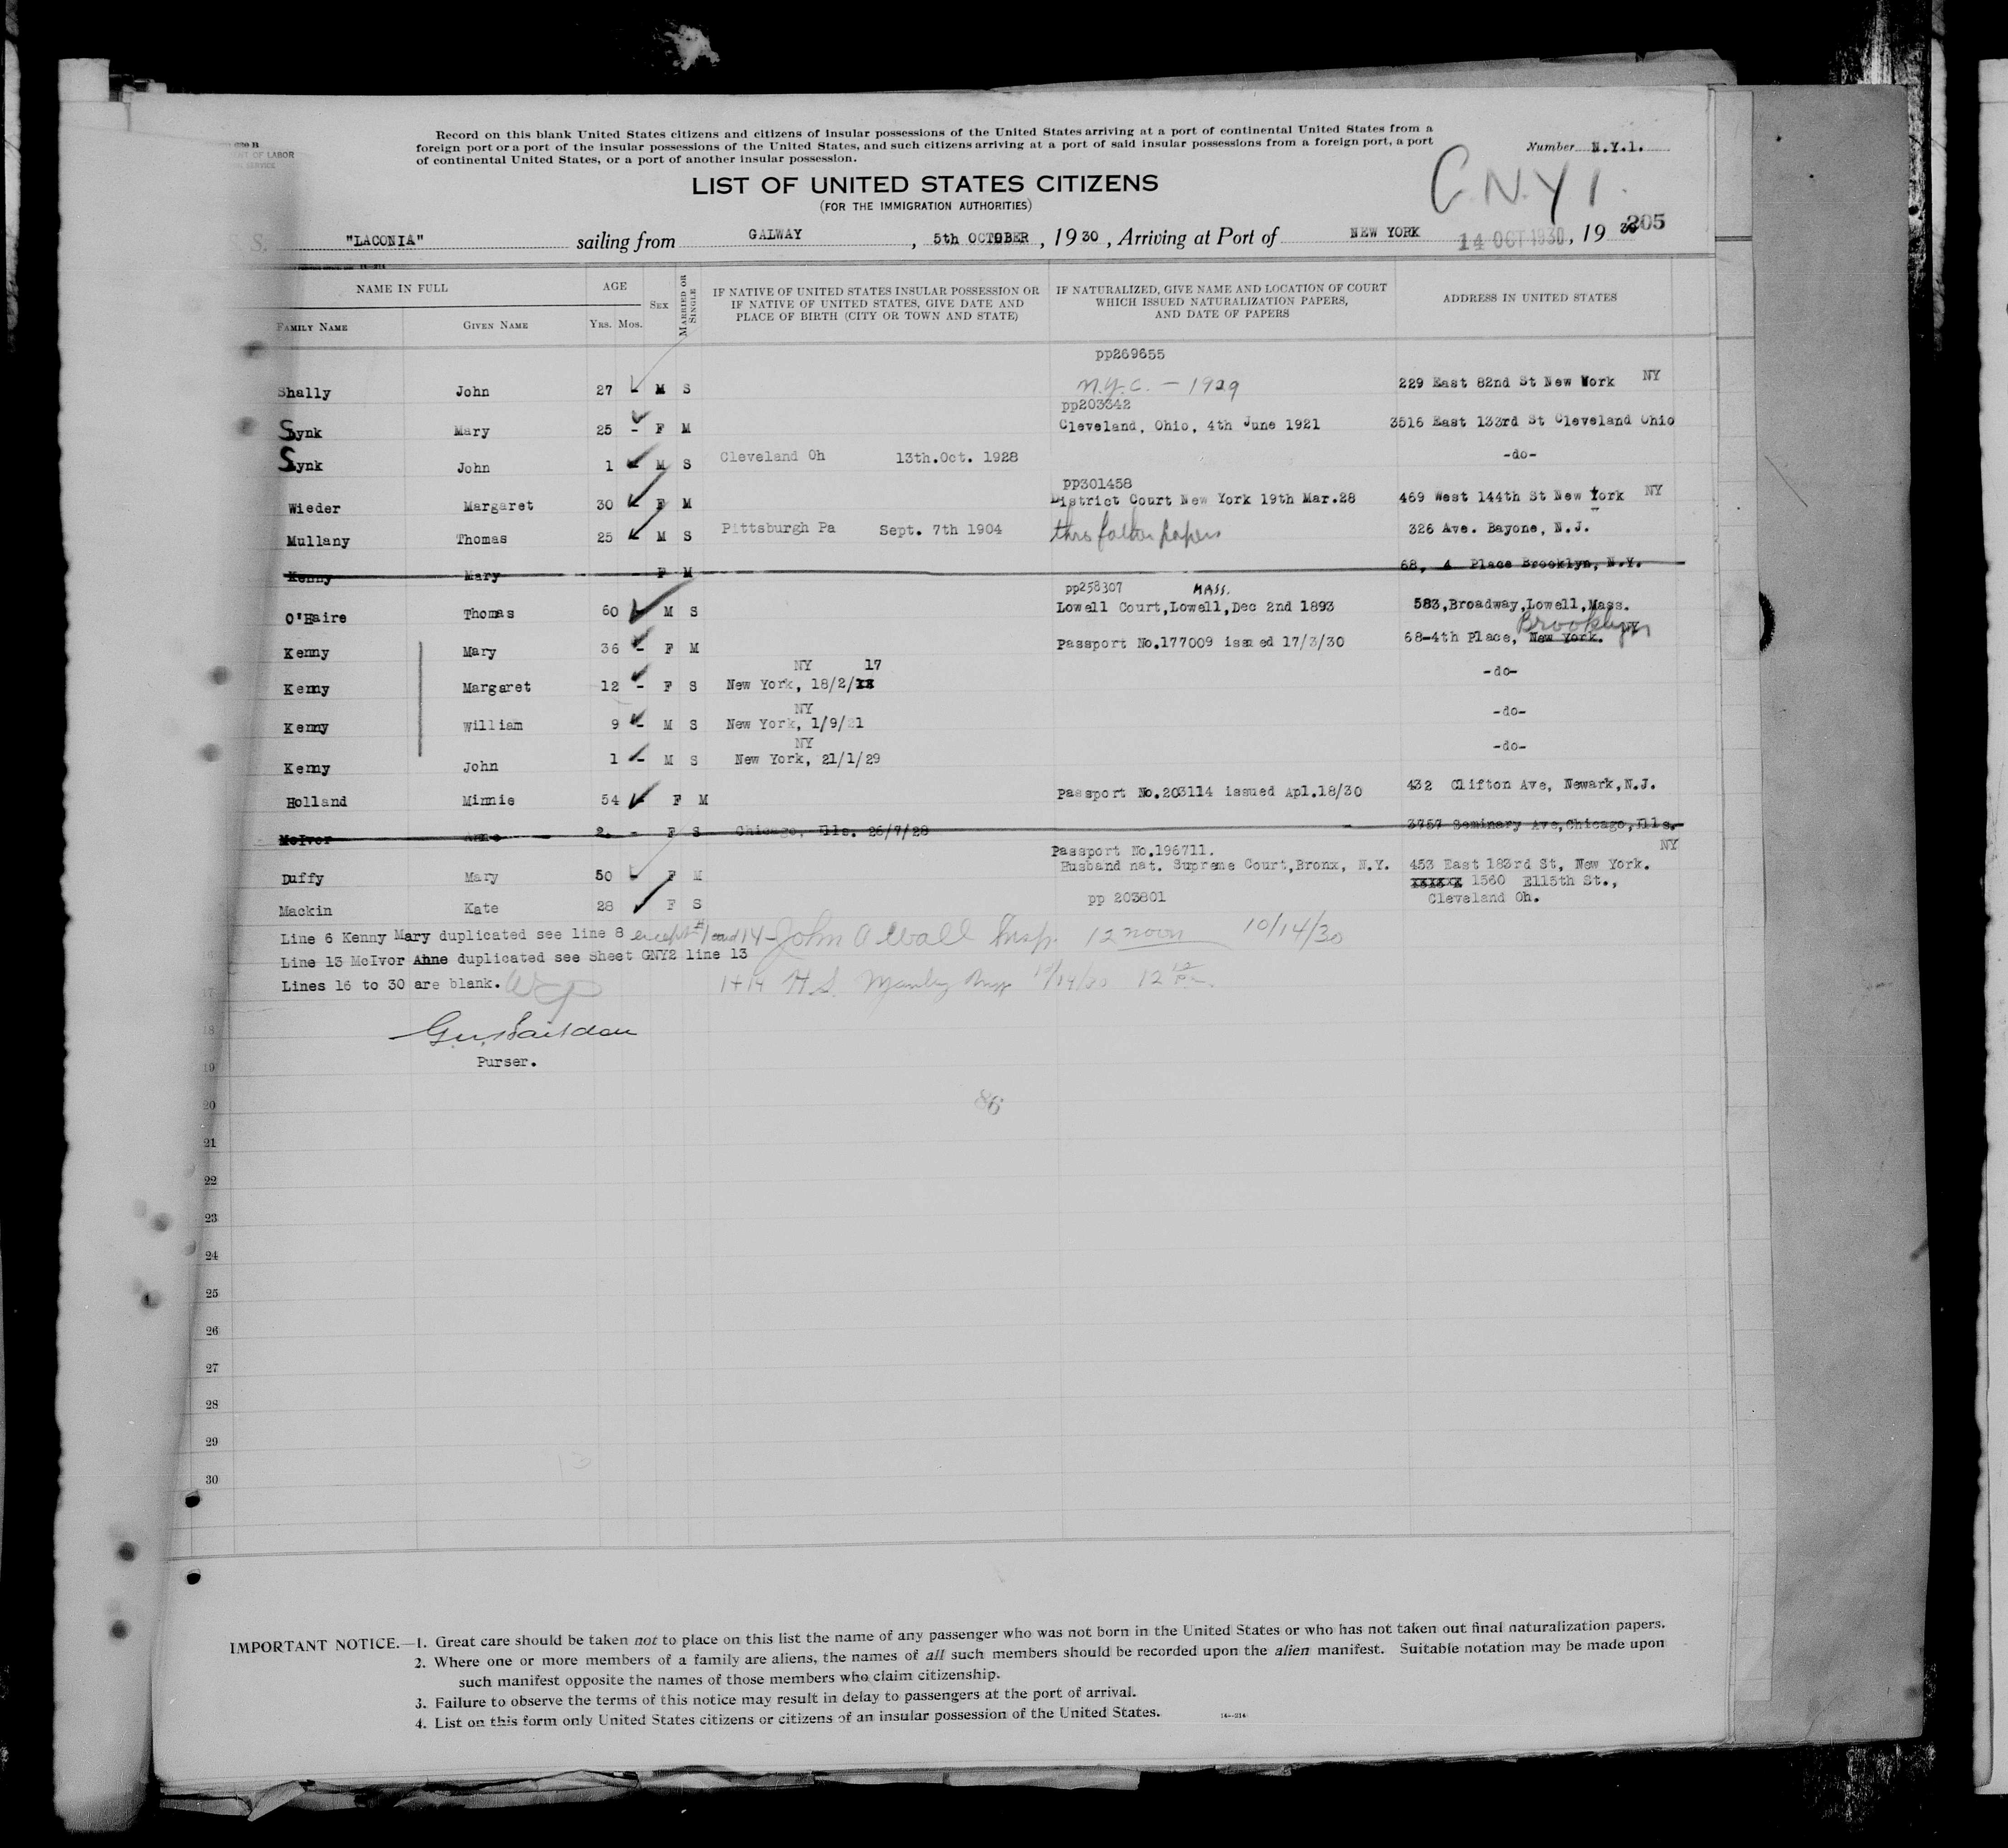 Record on this blank United States citizens and citizens of insular possessions of the United States arriving at a port of continental United States from a
foreign port or a port of the insular possessions of the United States, and such citizens arriving at a port of said insular possessions from a foreign port, a port
of continental United States, or a port of another insular possession.
Number N.Y.1.
G.N.Y 1.
LIST OF UNITED STATES CITIZENS
(FOR THE IMMIGRATION AUTHORITIES)
205
S. S. "LACONIA" sailing from GALWAY, 5th OCTOBER, 1930, Arriving at Port of NEW YORK 14 OCT 1930, 19 30
NAME IN FULL
AGE
SEX
MARRIED OR SINGLE
IF NATIVE OF UNITED STATES INSULAR POSSESSION OR
IF NATIVE OF UNITED STATES, GIVE DATE AND
PLACE OF BIRTH (CITY OR TOWN AND STATE)
IF NATURALIZED, GIVE NAME AND LOCATION OF COURT
WHICH ISSUED NATURALIZATION PAPERS,
AND DATE OF PAPERS
ADDRESS IN UNITED STATES
FAMILY NAME GIVEN NAME YRS. MOS.
pp269655
Shally John 27 - M S N.Y.C. - 1929 229 East 82nd St New York NY
pp203342
Synk Mary 25 - F M Cleveland, Ohio, 4th June 1921 3516 East 133rd St Cleveland Ohio
Synk John 1 - M S Cleveland Oh 13th.Oct. 1928 -do-
pp301458
Wieder Margaret 30 - F M District Court New York 19th Mar.28 469 West 144th St New York NY
Mullany Thomas 25 - M S Pittsburgh Pa Sept. 7th 1904 thro father papers 326 Ave. Bayone, N.J.
Kenny Mary F M 68, 4 Place Brooklyn, N.Y.
pp258307 MASS.
O'Haire Thomas 60 - M S Lowell Court,Lowell,Dec 2nd 1893 583,Broadway,Lowell,Mass.
Brooklyn NY
Kenny Mary 36 - F M Passport No.177009 issued 17/3/30 68-4th Place, New York.
NY 17
Kenny Margaret 12 - F S New York, 18/2/ -do-
NY
Kenny William 9 - M S New York, 1/9/21 -do-
NY
Kenny John 1 - M S New York, 21/1/29 -do-
Holland Minnie 54 - F M Passport No.203114 issued Apl.18/30 432 Clifton Ave, Newark,N.J.
McIvor Anne 2. - F S Chicago, Ills. 26/7/28 3757 Seminary Ave,Chicago,Ills.
Passport No.196711. NY
Duffy Mary 50 - F M Husband nat. Supreme Court,Bronx, N.Y. 453 East 183rd St, New York.
xxxxxx 1560 E115th St.,
Mackin Kate 28 F S pp 203801 Cleveland Oh.
Line 6 Kenny Mary duplicated see line 8 except #1 and 14 - John A Wall Insp. 12 noon 10/14/30
Line 13 McIvor Anne duplicated see Sheet GNY2 line 13
Lines 16 to 30 are blank.
1+14 H.S. Manley Insp 10/14/30
17
18
Purser.
19
20
86
21
22
23
24
25
26
27
28
29
30
IMPORTANT NOTICE.—1. Great care should be taken not to place on this list the name of any passenger who was not born in the United States or who has not taken out final naturalization papers.
2. Where one or more members of a family are aliens, the names of all such members should be recorded upon the alien manifest. Suitable notation may be made upon
such manifest opposite the names of those members who claim citizenship.
3. Failure to observe the terms of this notice may result in delay to passengers at the port of arrival.
4. List on this form only United States citizens or citizens of an insular possession of the United States.